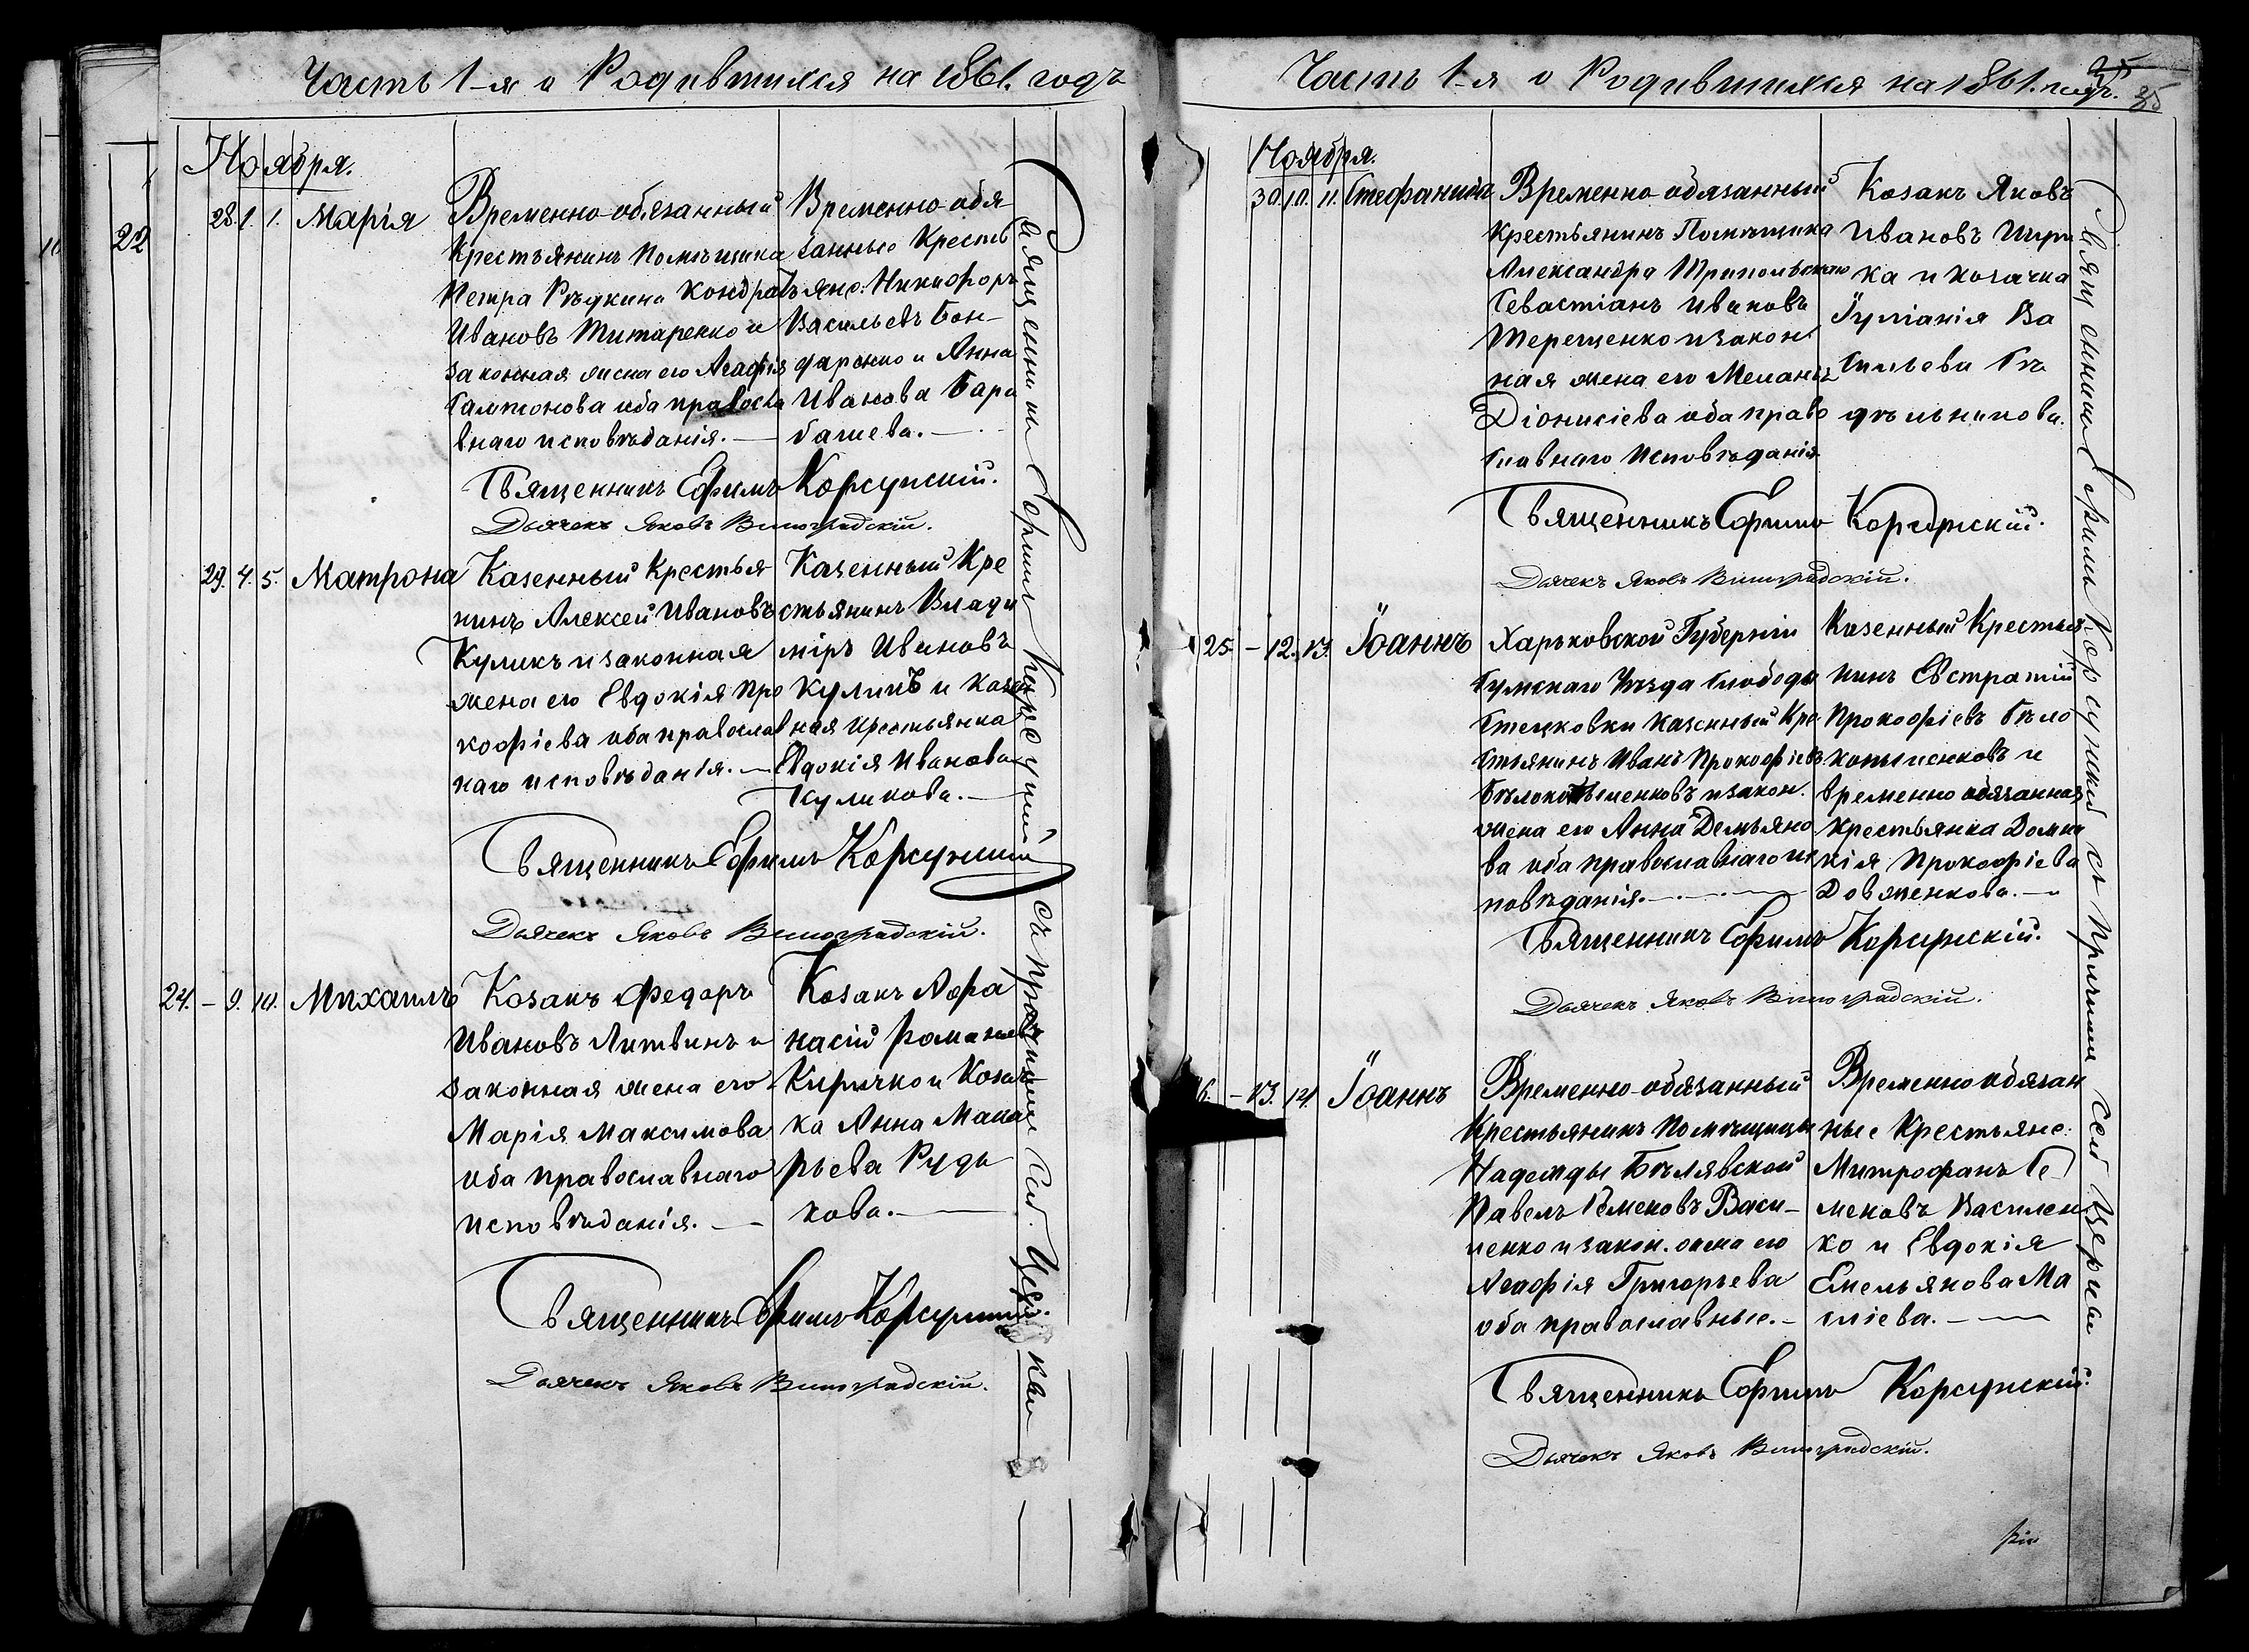 Часть 1-я о Родившихся на 1861. годъ
Ноября.
22
28. 1. 1. Марія
Временно-обязанный
Крестьянинъ Помѣщика
Петра Рѣдкина Кондратъ
Ивановъ Титаренко и
законная жена его Агафія
Самсонова оба правосла
внаго исповѣданія. —
Временно-обя-
занные Кресть
яне: Никифоръ
Васильевъ Бон-
даренко и Анна
Иванова Бара
башева. —
Священникъ Ефимъ Корсунскій.
Дьячекъ Яковъ Виноградскій.
29. 4. 5. Матрона
Казенный Крестья
нинъ Алексей Ивановъ
Куликъ и законная
жена его Евдокія Про
кофіева оба православ
наго исповѣданія. —
Казенный Кре
стьянинъ Влади
міръ Ивановъ
Куликъ и казен
ная крестьянка
Евдокія Иванова
Куликова. —
Священникъ Ефимъ Корсунскій
Дьячекъ Яковъ Виноградскій.
24. — 9. 10. Михаилъ
Козакъ Федоръ
Ивановъ Литвинъ и
законная жена его
Марія Максимова
оба православнаго
исповѣданія. —
Козакъ Афа
насій Романовъ
Киричко и Козач
ка Анна Мака
рьева Рудь
кова. —
Священникъ Ефимъ Корсунскій
Дьячекъ Яковъ Виноградскій.
Священникъ Ефимъ Корсунскій съ причтомъ сей Церкви
Часть 1-я о Родившихся на 1861. годъ.
35
Ноября.
30. 10. 11. Стефанида
Временно-обязанный
Крестьянинъ Помѣщика
Александра Трипольскаго
Севастіанъ Ивановъ
Терещенко и закон
ная жена его Меланія
Діонисіева оба право
славнаго Исповѣданія
Козакъ Яковъ
Ивановъ Шири
ка и козачка
Іуліанія Ва
сильева
Священникъ Ефимъ Корсунскій.
Дьячекъ Яковъ Виноградскій.
25. — 12. 13. Іоаннъ
Харьковской Губерніи
Сумскаго Уѣзда Слободы
Стецковки казенный Кре
стьянинъ Иванъ Прокофіевъ
Бѣлокопыценковъ и закон.
жена его Анна Демьяно
ва оба православнаго ис
повѣданія. —
Казенный Крестья
нинъ Евстратій
Прокофіевъ Бѣло
копыценковъ и
временно обязанная
крестьянка Домни
кія Прокофіева
Довженкова. —
Священникъ Ефимъ Корсунскій.
Дьячекъ Яковъ Виноградскій.
6. — 13. 14. Іоаннъ
Временно-обязанный
Крестьянинъ Помѣщицы
Надежды Бѣлявской
Павелъ Семеновъ Васи-
ленко и закон. жена его
Агафія Григорьева
оба православные. —
Временно обязан
ные Крестьяне:
Митрофанъ Се
меновъ Василен
ко и Евдокія
Емельянова Ма
сліева. —
Священникъ Ефимъ Корсунскій.
Дьячекъ Яковъ Виноградскій.
Священникъ Ефимъ Корсунскій съ причтомъ сей Церкви